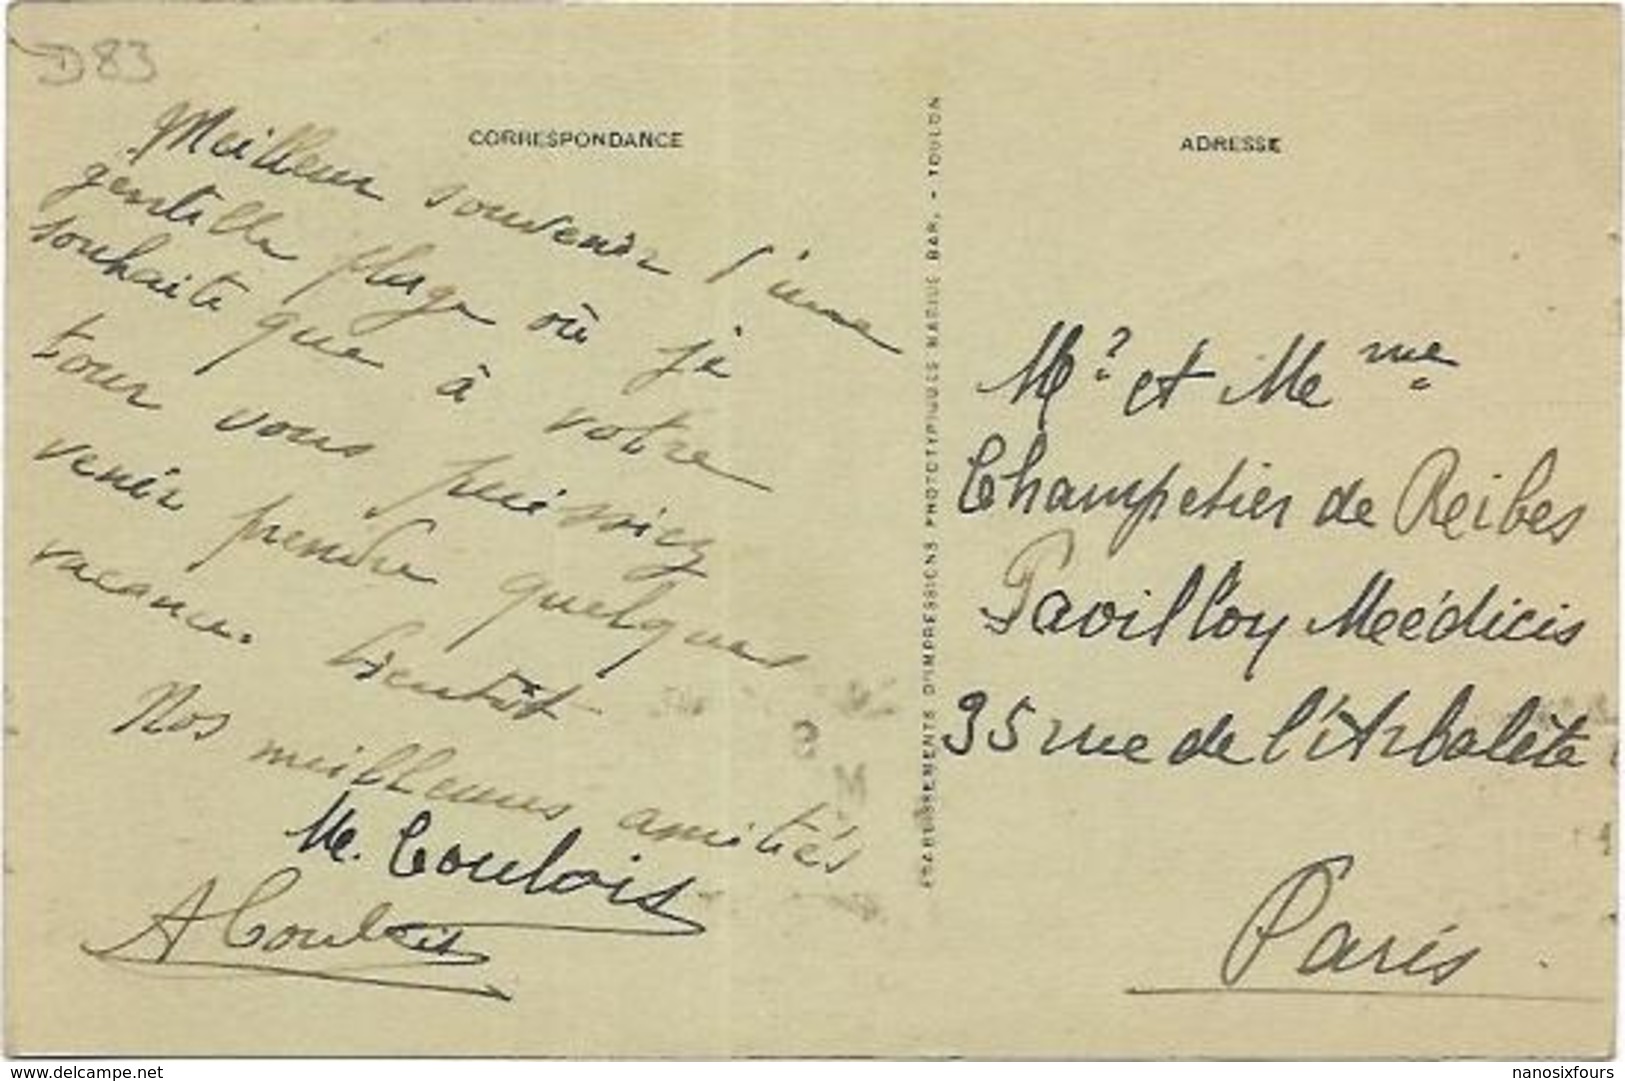 D83
CORRESPONDANCE
Meilleur souvenir d'une
gentille plage où je
souhaite que à votre
tour vous puissiez
venir prendre quelques
vacances bientôt
Nos meilleures amitiés
M. Coulois
A Coulois
ETABLISSEMENTS D'IMPRESSIONS PHOTOTYPIQUES MARIUS BAR, - TOULON
ADRESSE
Mr et Mme
Champetier de Reibes
Pavillon Médicis
35 rue de l'Arbalète
Paris
www.delcampe.net
nanosixfours